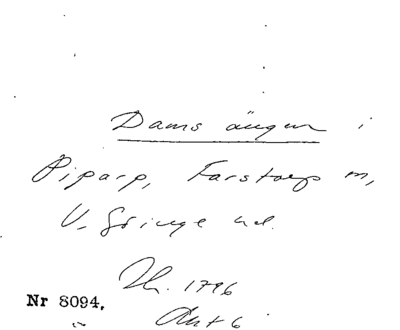 Dams ängen i
Piparp, Farstorp sn,
V. Göinge hd.
1796
Nr 8094.
Akt 6